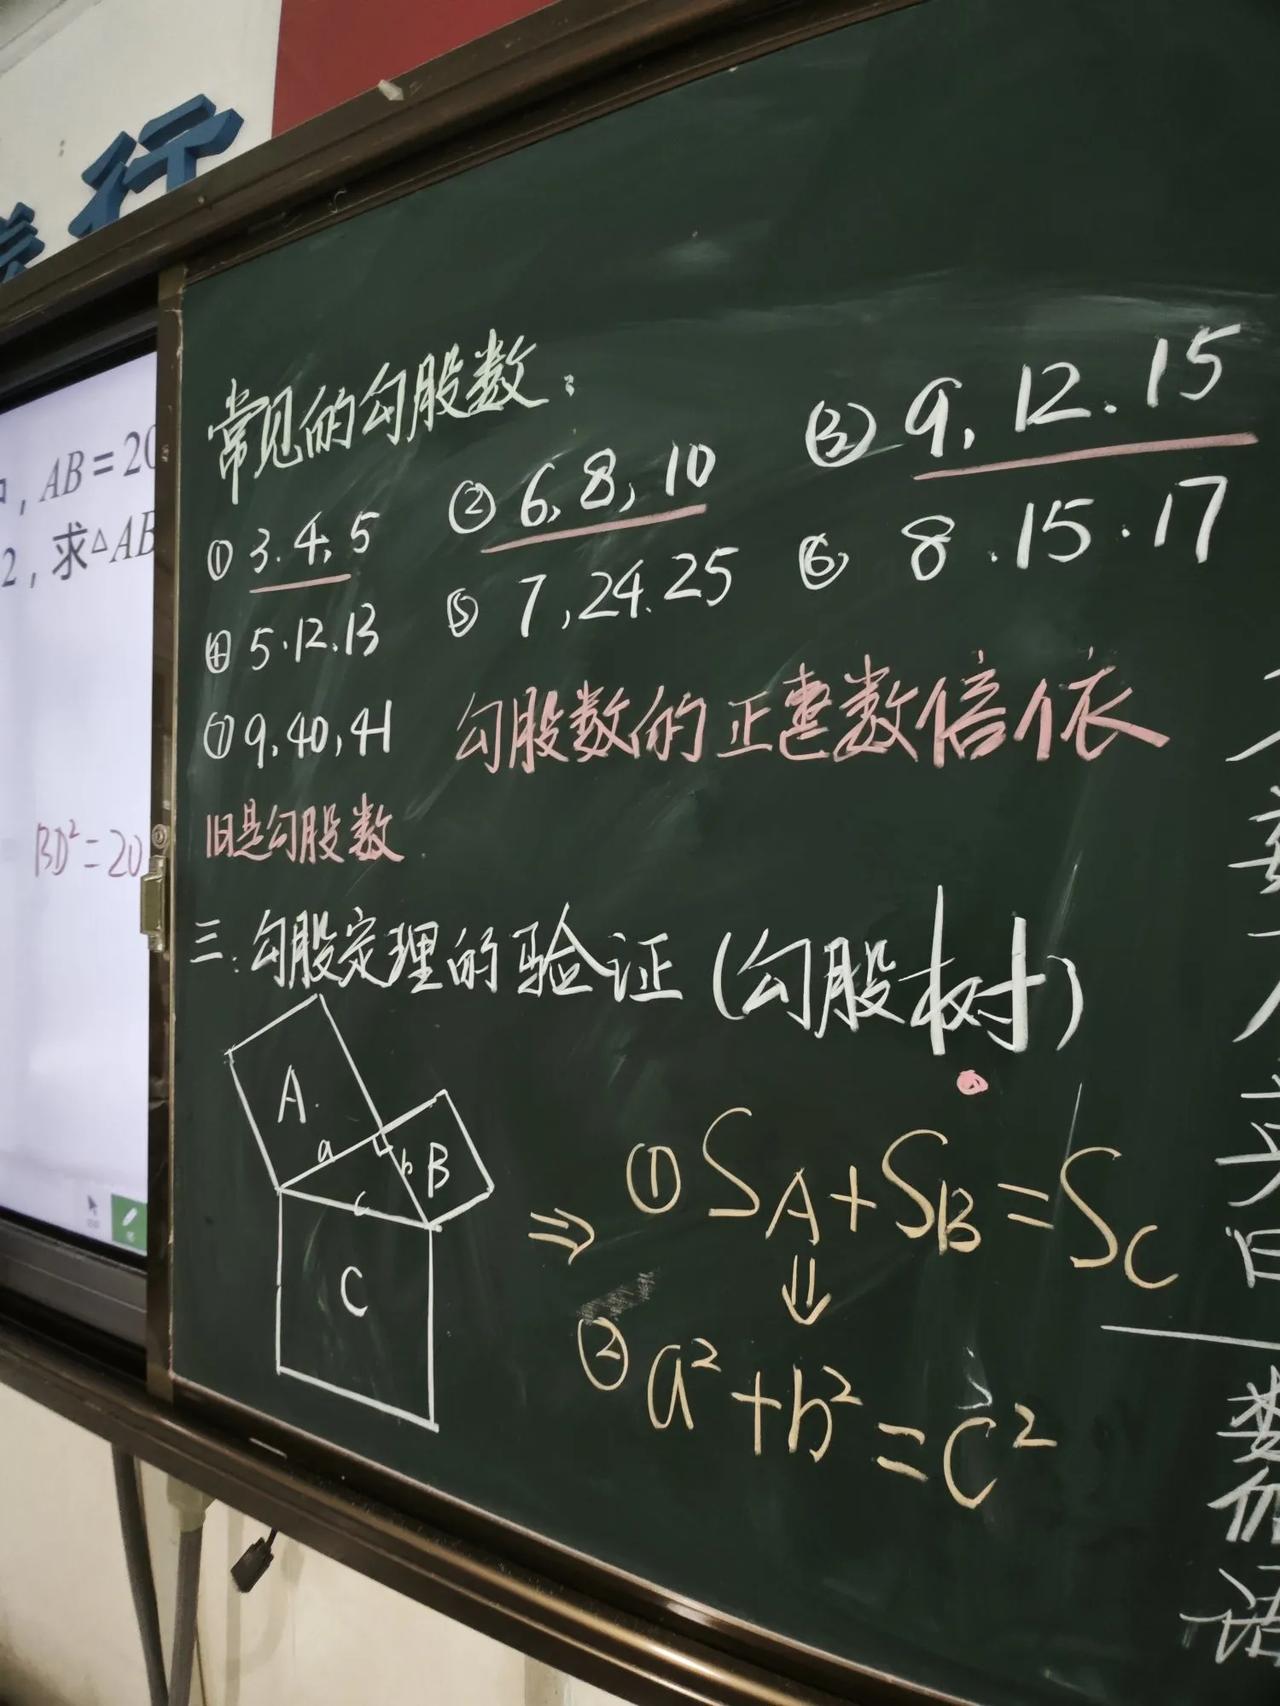 行
, AB=20
2, 求△AB
BD²=20
常见的勾股数:
① 3.4,5 ② 6,8,10 ③ 9,12.15
④ 5.12.13 ⑤ 7,24.25 ⑥ 8.15.17
⑦ 9,40,41 勾股数的正整数倍依
旧是勾股数
三.勾股定理的验证(勾股树)
A.
a
b
B
c
C
⇒ ① SA+SB=SC
⇓
② a²+b²=c²